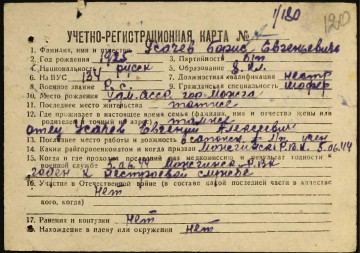 1/180
120
УЧЕТНО-РЕГИСТРАЦИОННАЯ КАРТА №
1. Фамилия, имя и отчество Усачев Борис Евгеньевич
2. Год рождения 1925 3. Партийность б/п
4. Национальность русск 5. Образование 8 кл
6. На ВУС 134 7. Должностная квалификация
8. Военное звание 9. Гражданская специальность шофер
10. Место рождения гор. Можга
11. Последнее место жительства
12. Где проживает в настоящее время семья (фамилия, имя и отчество жены или
родителей и точный адрес)
отец Усачев Евгений Алексеевич
13. Последнее место работы и должность
14. Каким райгорвоенкоматом и когда призван Можгинск РВК 5.06.44
15. Когда и где проходил последний раз медкомиссию и результат годности к
военной службе 5.06.44 Можгинск РВК
годен к нестроевой службе
16. Участие в Отечественной войне (в составе какой последней части в качестве
кого, когда) Нет
17. Ранения и контузии Нет
18. Нахождение в плену или окружении Нет